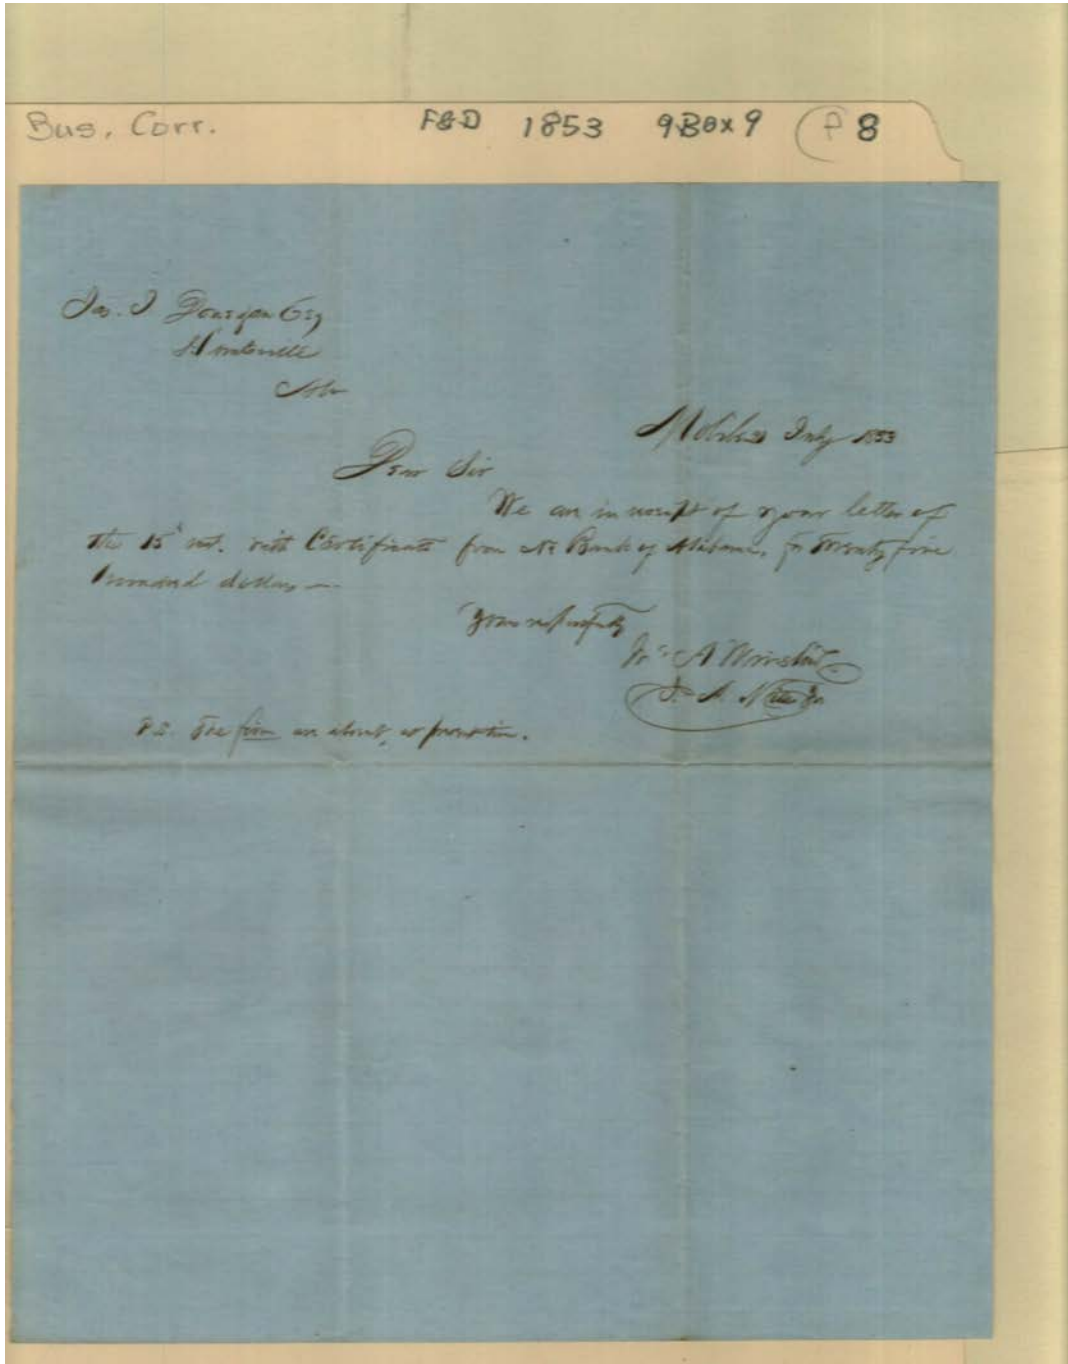 Bus. Corr. F&D 1853 9Box9 P 8
Jas. J Donegan Esq
Huntsville
Ala
Mobile 21 July 1853
Dear Sir
We are in receipt of your letter of
the 15 inst. with Certificate from No Bank of Alabama, for Twenty five
hundred dollars —
Yours respectfully
Jno A Winston
P.S. The firm are absent